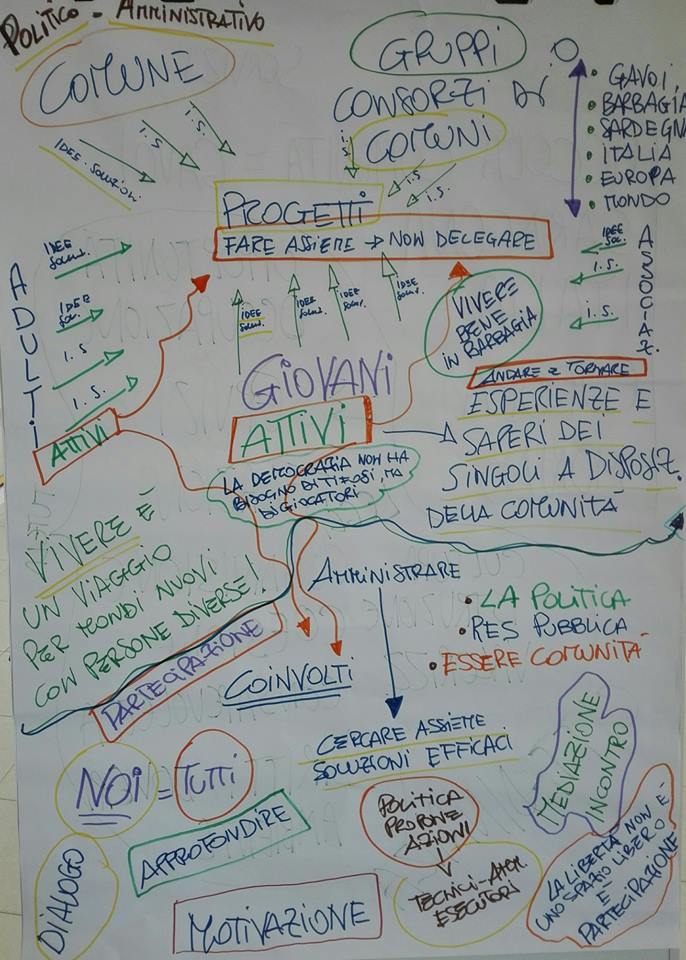 POLITICO - AMMINISTRATIVO
COMUNE
GRUPPI
CONSORZI DI
COMUNI
GAVOI,
BARBAGIA
SARDEGNA
ITALIA
EUROPA
MONDO
IDEE. SOLUZIONI
I.S.
I.S.
I.S.
I.S.
I.S.
PROGETTI
FARE ASSIEME → NON DELEGARE
ADULTI
IDEE
SOLUZ.
IDEE
SOL.
I.S.
I.S.
ATTIVI
IDEE
SOLUZ.
IDEE
SOLUZ.
IDEE
SOLUZ.
IDEE
SOLUZ.
ASSOCIAZ.
IDEE
SOL.
I.S.
I.S.
VIVERE
BENE
IN BARBAGIA
GIOVANI
ATTIVI
ANDARE E TORNARE
ESPERIENZE E
SAPERI DEI
SINGOLI A DISPOSIZ.
DELLA COMUNITÀ
LA DEMOCRAZIA NON HA
BISOGNO DI TIFOSI, MA
DI GIOCATORI
VIVERE È
UN VIAGGIO
PER MONDI NUOVI
CON PERSONE DIVERSE!
PARTECIPAZIONE
AMMINISTRARE
COINVOLTI
LA POLITICA
RES PUBBLICA
ESSERE COMUNITÀ
CERCARE ASSIEME
SOLUZIONI EFFICACI
NOI = TUTTI
APPROFONDIRE
DIALOGO
MOTIVAZIONE
POLITICA
PROPONE
AZIONI
TECNICI-AMM.
ESECUTORI
MEDIAZIONE
INCONTRO
LA LIBERTÀ NON È
UNO SPAZIO LIBERO
È
PARTECIPAZIONE